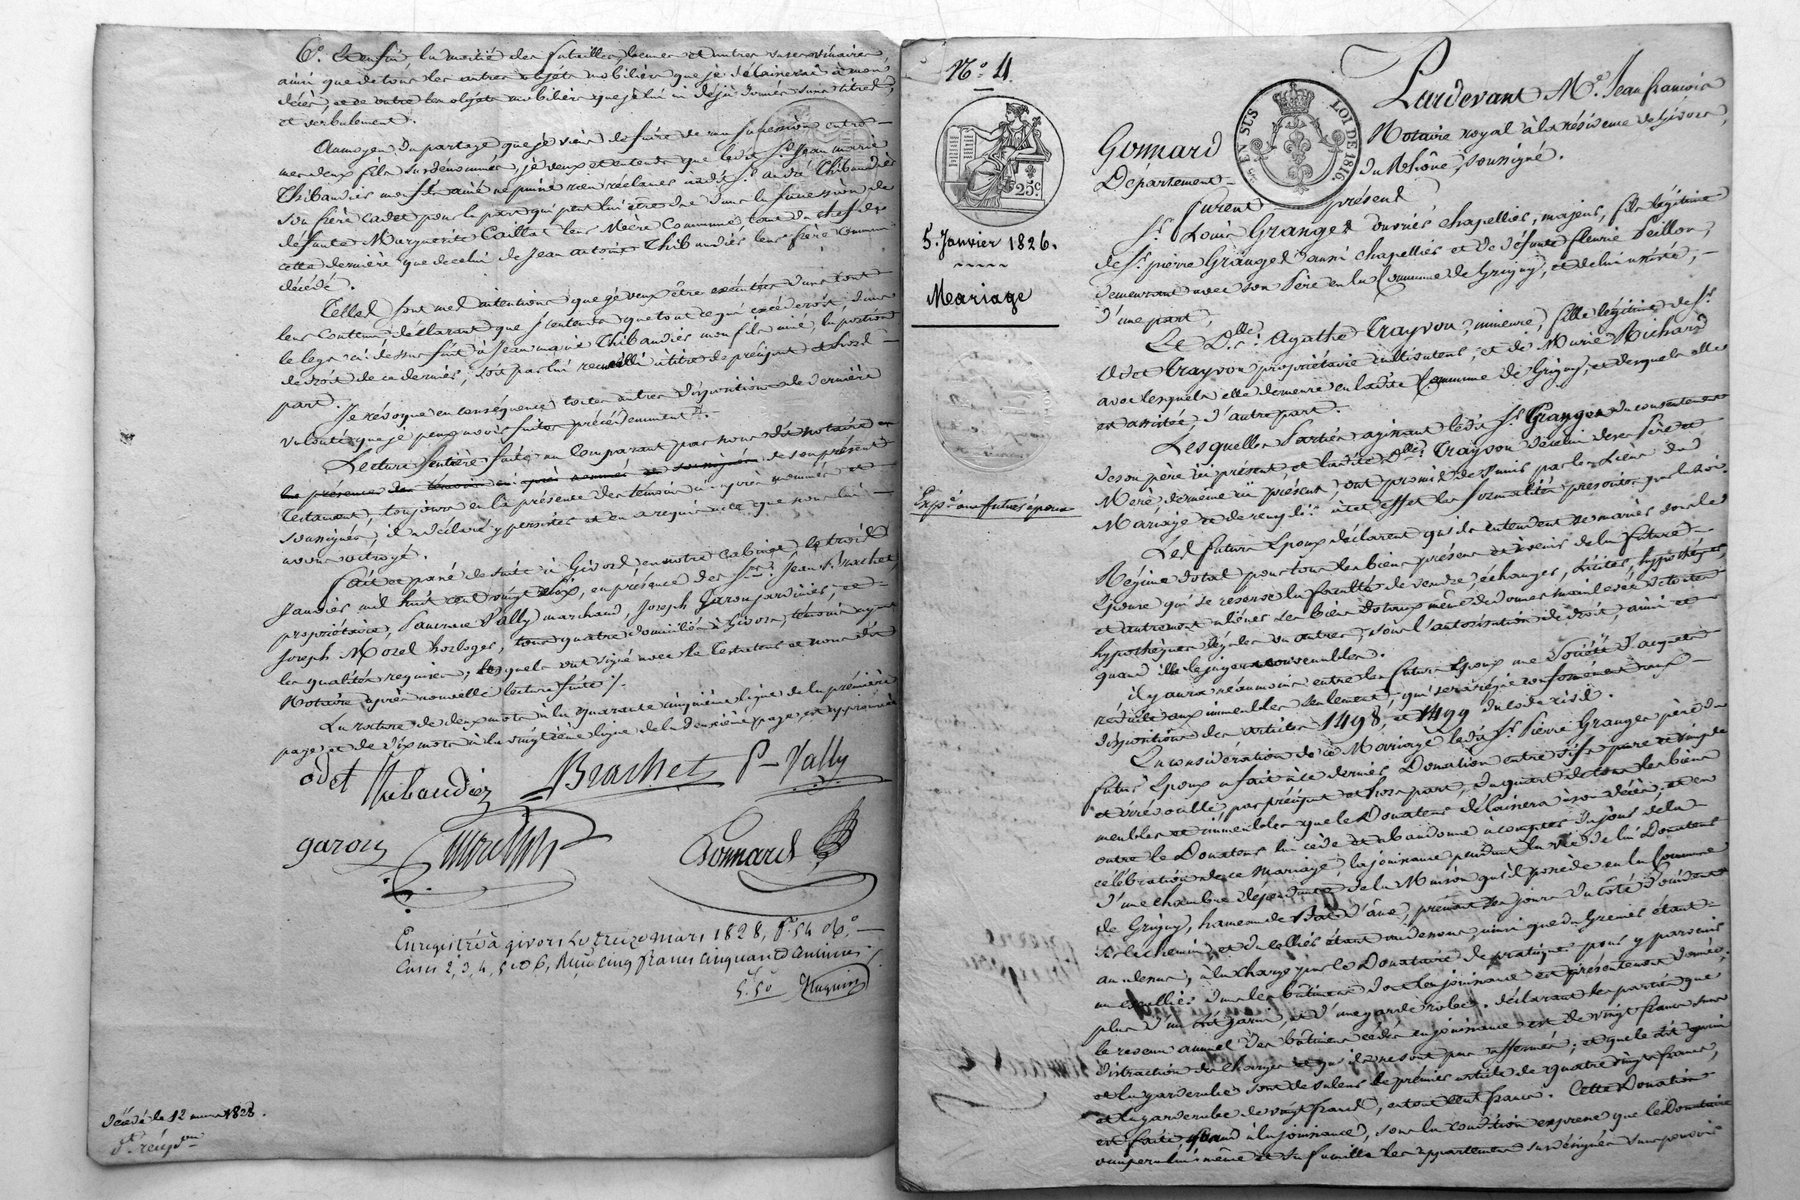 6.° Enfin, la moitié des futailles, bennes et autres vases vinaires
ainsi que de tous les autres objets mobiliers que je délaisserai à mon
décès et en outre les objets mobiliers que je lui ai déjà donnés sans titres
et verbalement.
Au moyen du partage que je viens de faire de ma succession entre
mes deux fils susdénommés, je veux et entends que ledit S.r Jean Marie
Thibaudier mon fils aîné ne puisse rien réclamer audit S.r André Thibaudier
son frère cadet pour la part qui peut lui être due dans la succession de
défunte Marguerite Caillat leur Mère Commune, tant du chef de
cette dernière que de celui de Jean Antoine Thibaudier leur frère Commun
décédé.
Telles sont mes intentions que je veux être exécutées dans tout
leur Contenu, déclarant que j'entends que tout ce qui excéderoit, dans
le legs ci-dessus fait à Jean Marie Thibaudier mon fils aîné, la portion
de droit de ce dernier, soit par lui recueilli à titre de préciput et hors
part.
Je révoque en conséquence toutes autres dispositions de dernière
volonté que je peux avoir faites précédemment.
Lecture entière faite au Comparant par nous dit notaire en
la présence des témoins ci après nommés et soussignés de son présent
Testament, toujours en la présence des témoins ci-après nommés et
soussignés, il a déclaré y persister et en a requis acte que nous lui
avons octroyé.
Fait et passé de suite à Givors en notre Cabinet le trois
Janvier mil huit cent vingt six, en présence des S.rs Jean P. Brachet
propriétaire, Laurence Vally marchand, Joseph Garon jardinier, et
Joseph Morel horloger, tous quatre domiciliés à Givors, témoins ayant
les qualités requises, lesquels ont signé avec le Testateur et nous dit
Notaire après nouvelle lecture faite /.
La rature de deux mots à la quarante cinquième ligne de la première
page et de dix mots à la vingtième ligne de la deuxième page est approuvée
odet thibaudier Brachet P. Vally
garon Gonnard
Enregistré à givors le treize mars 1828, f.° 54 R.°
Cases 2, 3, 4, 5 et 6, Reçu cinq francs cinquante centimes
5. 50
Décédé le 12 mars 1828.
N.° 4
EN SUS
LOI DE 1816
25.c
5. Janvier 1826.
Mariage
Exp.é aux futurs époux
Pardevant M.e Jean françois
Gonnard Notaire royal à la résidence de Givors,
Département du Rhône, soussigné.
furent présent
S.r Louis Granger ouvrier chapellier, majeur, fils légitime
de S.r pierre Granger aussi chapellier et de défunte fleurie Peillon,
demeurant avec son Père en la Commune de Grigny, et de lui assisté,
d'une part,
Et D.lle Agathe Trayvou, mineure, fille légitime de S.r
Odet Trayvou propriétaire cultivateur, et de Marie Richard
avec lesquels elle demeure en ladite Commune de Grigny, et desquels elle
est assistée, d'autre part.
Lesquelles Parties agissant ledit S.r Granger du consentement
de son père ici présent, et ladite D.lle Trayvou de celui de ses Père et
Mère, de même ici présent, ont promis de s'unir par les Liens du
Mariage et de remplir à cet effet les formalités prescrites par les lois.
Les futurs Epoux déclarent qu'ils entendent se marier sous le
Régime dotal pour tous les biens présens et à venir de la future
Epouse qui se réserve la faculté de vendre, échanger, liciter, hypothéquer
et autrement aliéner ses biens dotaux même de donner main levée de toutes
hypothèques légales ou autres, sous l'autorisation de droit, ainsi et
quand ils le jugeront convenables.
Il y aura néanmoins entre les futurs Epoux une Société d'acquêts
réduite aux immeubles seulement, qui sera régie conformément aux
dispositions des articles 1498, et 1499 du code civil.
En considération de ce Mariage ledit S.r Pierre Granger père du
futur Epoux a fait à ce dernier Donation entre vifs pure et simple
et irrévocable, par préciput et hors part, du quart de tous les biens
meubles et immeubles que le Donateur délaissera à son décès, et en
outre le Donateur lui cède et abandonne à compter du jour de la
célébration de ce Mariage la jouissance pendant la vie de lui Donateur
d'une chambre dépendante de la Maison qu'il possède en la Commune
de Grigny, hameau de Bât d'âne, prenant son jour du côté d'occident
sur le chemin, et du cellier étant au dessous, ainsi que du Grenier étant
au dessus, à la charge par le Donataire de pratiquer pour y parvenir
un escallier dans les bâtimens dont la jouissance est présentement donnée,
plus d'un lit garni, et d'une garde robe. déclarant les parties que
le revenu annuel des bâtimens cédés en jouissance est de vingt francs sans
distraction des charges et qu'ils ne sont pas affermés; et que le lit garni
et la garderobe sont de valeur le premier article de quatre vingts francs,
et la garderobe de vingt francs, en tout cent francs. Cette Donation
est faite, quand à la jouissance, sous la condition expresse que le Donataire
occupera lui même et sa famille les appartemens susdésignés sans pouvoir